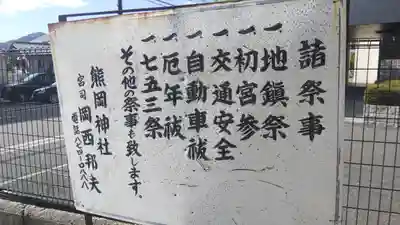 諸祭事
一地鎮祭
一初宮参
一交通安全
一自動車祓
一厄年祓
一七五三祭
その他祭事も致します。
熊岡神社
宮司 岡西邦夫
電話 八七四-〇八八八